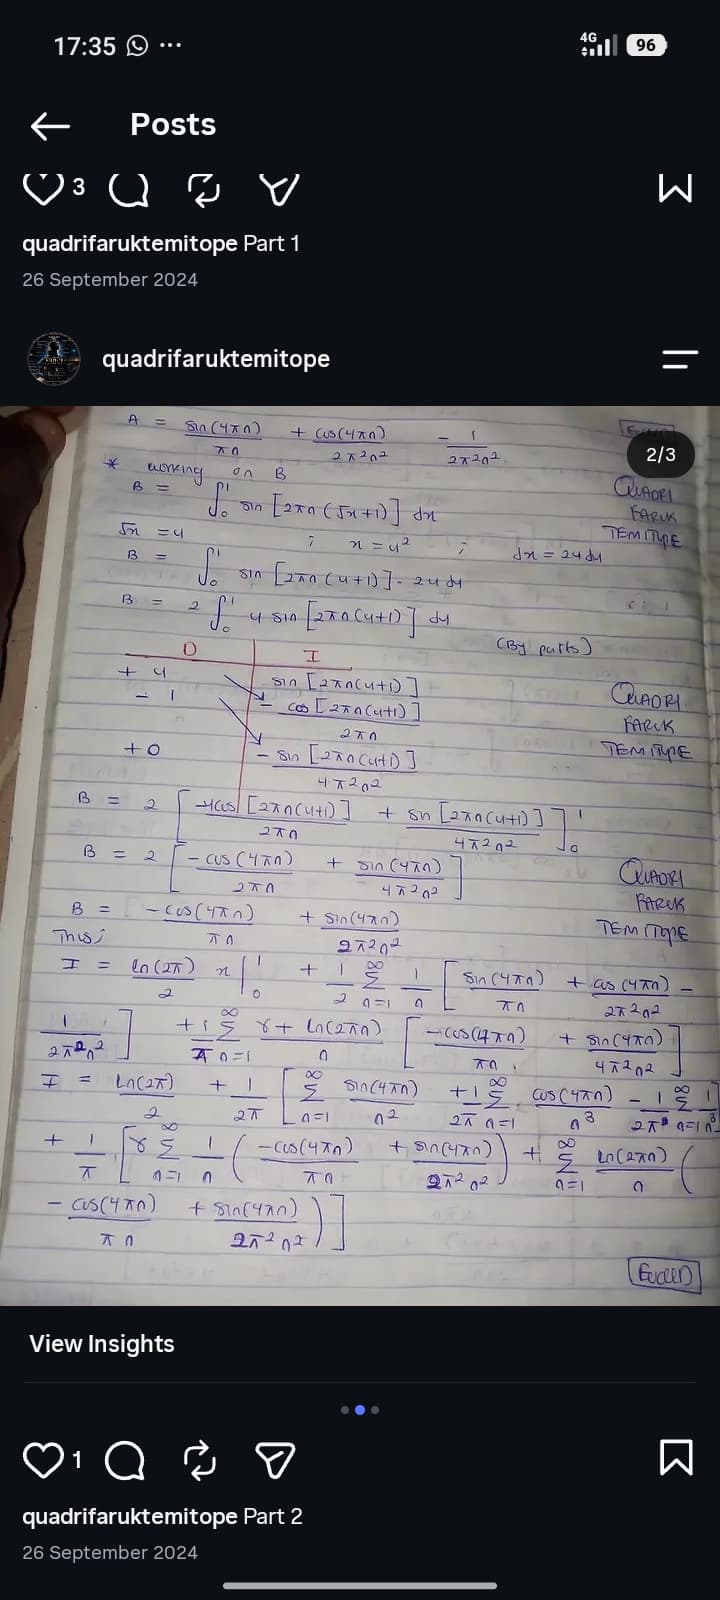 17:35 ...
4G 96
Posts
3
quadrifaruktemitope Part 1
26 September 2024
quadrifaruktemitope
2/3
A = sin(4πn)/πn + cos(4πn)/2π²n² - 1/2π²n²
* working on B
B = ∫₀¹ sin [2πn(√x+1)] dx
QUADRI
FARUK
TEMITOPE
√x = u ; x = u² ; dx = 2u du
B = ∫₀¹ sin [2πn(u+1)] . 2u du
B = 2 ∫₀¹ u sin [2πn(u+1)] du
(By parts)
D I
+ u sin [2πn(u+1)]
- 1 - cos [2πn(u+1)]/2πn
+ 0 - sin [2πn(u+1)]/4π²n²
QUADRI
FARUK
TEMITOPE
B = 2 [-ucos[2πn(u+1)]/2πn + sin[2πn(u+1)]/4π²n²]₀¹
B = 2 [-cos(4πn)/2πn + sin(4πn)/4π²n²]
QUADRI
FARUK
TEMITOPE
B = -cos(4πn)/πn + sin(4πn)/2π²n²
Thus;
I = ln(2π)/2 x |₀¹ + 1/2 ∞Σn=1 1/n [sin(4πn)/πn + cos(4πn)/2π²n² -
1/2π²n²] + 1/π ∞Σn=1 γ + ln(2πn)/n [-cos(4πn)/πn + sin(4πn)/4π²n²]
I = Ln(2π)/2 + 1/2π [∞Σn=1 sin(4πn)/n² + 1/2π ∞Σn=1 cos(4πn)/n³ - 1/2π ∞Σn=1 1/n³]
+ 1/π [γ ∞Σn=1 1/n (-cos(4πn)/πn + sin(4πn)/2π²n²) + ∞Σn=1 ln(2πn)/n (
- cos(4πn)/πn + sin(4πn)/2π²n²)]
EUCLID
View Insights
1
quadrifaruktemitope Part 2
26 September 2024